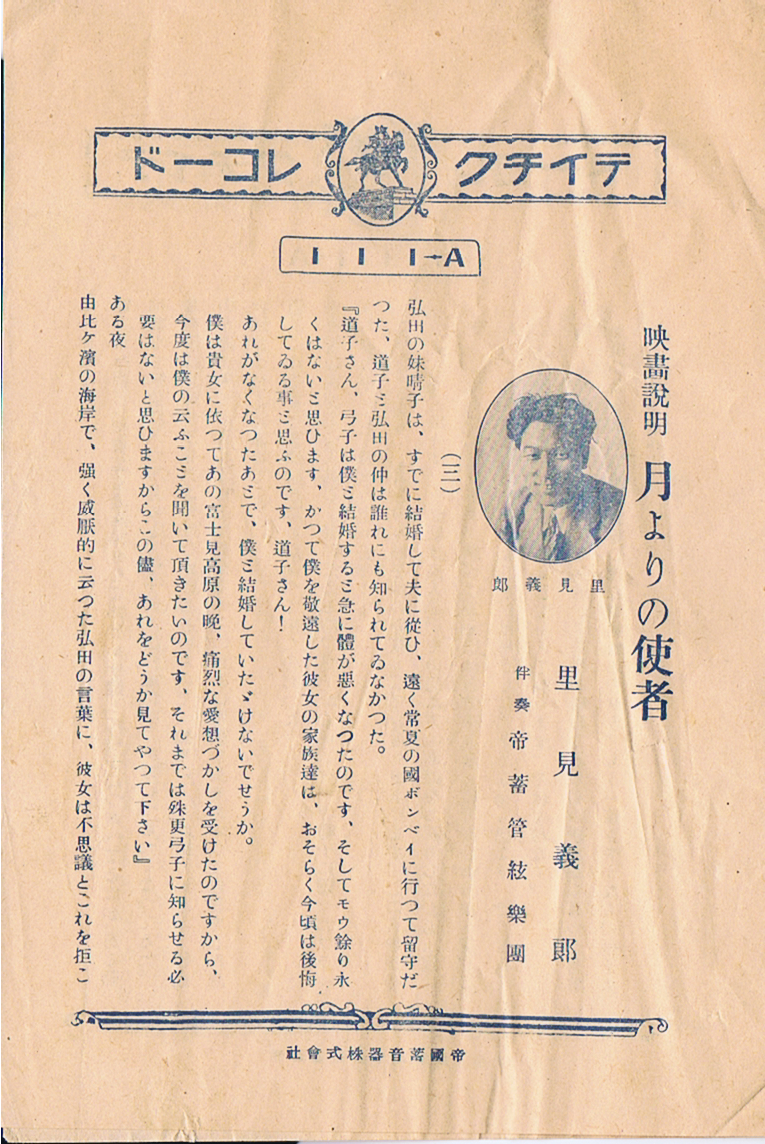 テイチク レコード
111-A
映畫說明 月よりの使者
里見義郎
里見義郎
伴奏 帝蓄管絃樂團
(三)
弘田の妹晴子は、すでに結婚して夫に從ひ、遠く常夏の國ボンベイに行つて留守だ
つた、道子と弘田の仲は誰れにも知られてゐなかつた。
『道子さん、弓子は僕と結婚すると急に體が惡くなつたのです、そしてモウ餘り永
くはないと思ひます、かつて僕を敬遠した彼女の家族達は、おそらく今頃は後悔
してゐる事と思ふのです、道子さん!
あれがなくなつたあとで、僕と結婚していたゞけないでせうか。
僕は貴女に依つてあの富士見高原の晩、痛烈な愛想づかしを受けたのですから、
今度は僕の云ふことを聞いて頂きたいのです、それまでは殊更弓子に知らせる必
要はないと思ひますからこの儘、あれをどうか見てやつて下さい』
ある夜
由比ケ濱の海岸で、强く威厭的に云つた弘田の言葉に、彼女は不思議とこれを拒こ
帝國蓄音器株式會社